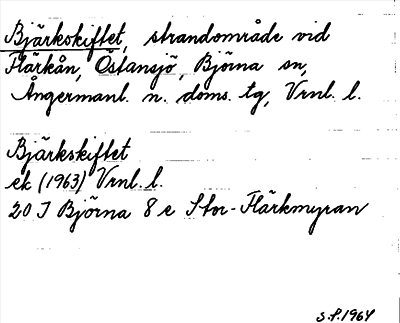 Bjärkskiftet, strandområde vid
Flärkån, Östansjö, Björna sn,
Ångermanl. n. doms. tg, Vrnl. l.
Bjärkskiftet
ek (1963) Vrnl. l.
20 I Björna 8 e Stor-Flärkmyran
S.P. 1964